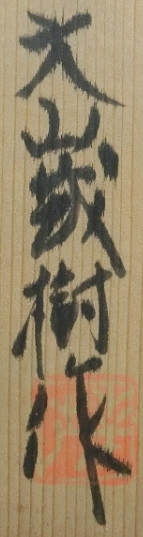 大山誠樹作